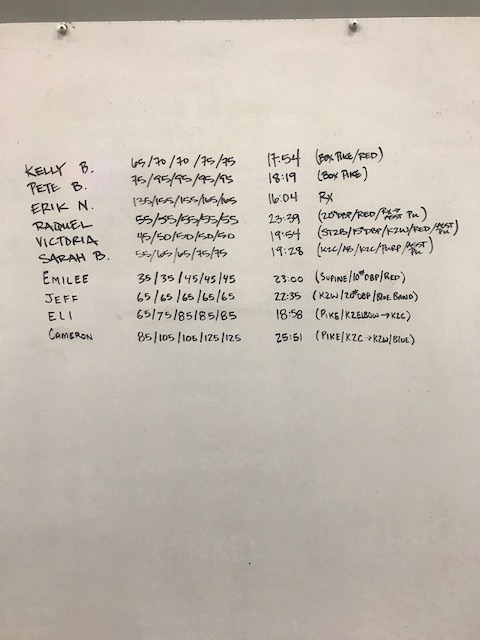 KELLY B. 65/70/70/75/75 17:54 (BOX PIKE/RED)
PETE B. 75/95/95/95/95 18:19 (BOX PIKE)
ERIK N. 135/155/155/165/165 16:04 RX
RAQUEL 55/55/55/55/55 23:39 (20#DBP/RED/RX→ ASST PU)
VICTORIA 45/50/50/50/50 19:54 (ST2B/15#DBP/K2W/RED/ASST PU)
SARAH B. 55/65/65/75/75 19:28 (K2C/AB/K2C/PURP/ASST PU)
EMILEE 35/35/45/45/45 23:00 (SUPINE/10#DBP/RED)
JEFF 65/65/65/65/65 22:35 (K2W/20#DBP/BLUE BAND)
ELI 65/75/85/85/85 18:58 (PIKE/K2ELBOW→K2C)
CAMERON 85/105/105/125/125 25:51 (PIKE/K2C→K2W/BLUE)